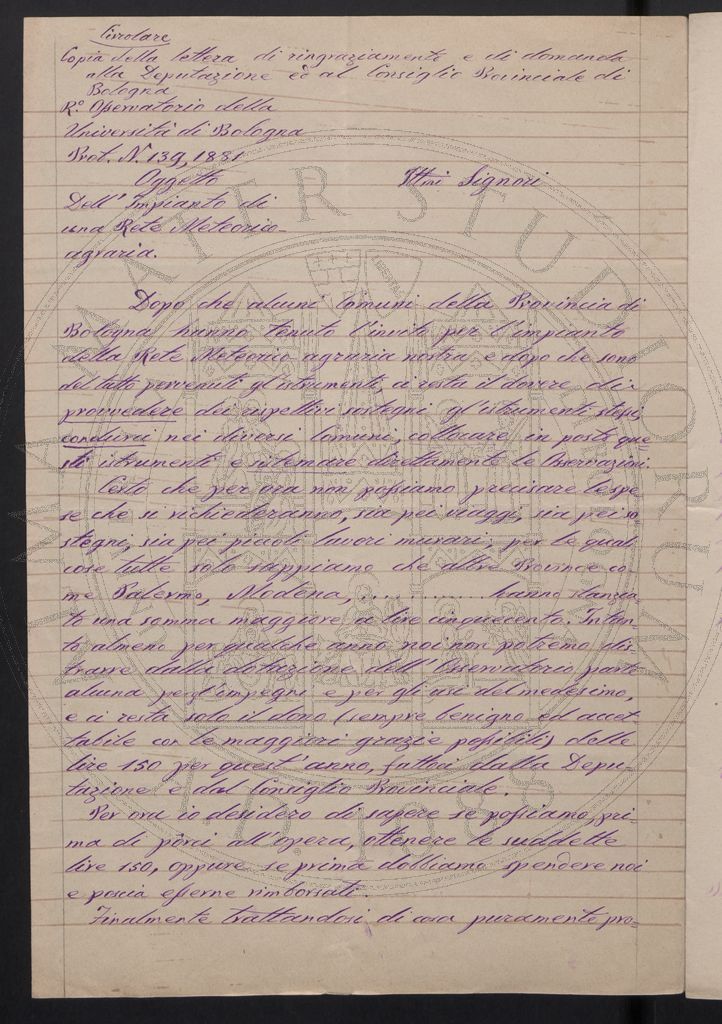 Circolare
Copia della lettera di ringraziamento e di domanda
alla Deputazione ed al Consiglio Provinciale di
Bologna
R.o Osservatorio della
Università di Bologna
Prot. N. 139, 1881
Oggetto Ill.mi Signori
Dell'Impianto di
una Rete Meteorico-
agraria.
Dopo che alcuni Comuni della Provincia di
Bologna hanno tenuto l'invito per l'impianto
della Rete Meteorico agraria nostra e dopo che sono
del tutto pervenuti gl'istrumenti, ci resta il dovere di
provvedere dei rispettivi sostegni gl'istrumenti stessi,
condursi nei diversi Comuni, collocare in posto que-
sti istrumenti e sistemare direttamente le Osservazioni.
Certo che per ora non possiamo precisare le spe-
se che si richiederanno, sia pei viaggi, sia pei so
stegni, sia pei piccoli lavori murari; per le quali
cose tutte solo sappiamo che altre Province co-
me Palermo, Modena, ............. hanno stanzia-
to una somma maggiore a lire cinquecento. Intan-
to almeno per qualche anno noi non potremo dis-
trarre dalla dotazione dell'Osservatorio parte
alcuna per gl'impegni e per gli usi del medesimo,
e ci resta solo il dono (sempre benigno ed accet-
tabile con le maggiori grazie possibili) delle
lire 150 per quest'anno, fattoci dalla Depu-
tazione e dal Consiglio Provinciale.
Per ora io desidero di sapere se possiamo, pri-
ma di pôrci all'opera, ottenere le suddette
lire 150, oppure se prima dobbiamo spendere noi
e poscia esserne rimborsati.
Finalmente trattandosi di cosa puramente pro-
ALMA MATER STUDIORUM
A.D. 1088